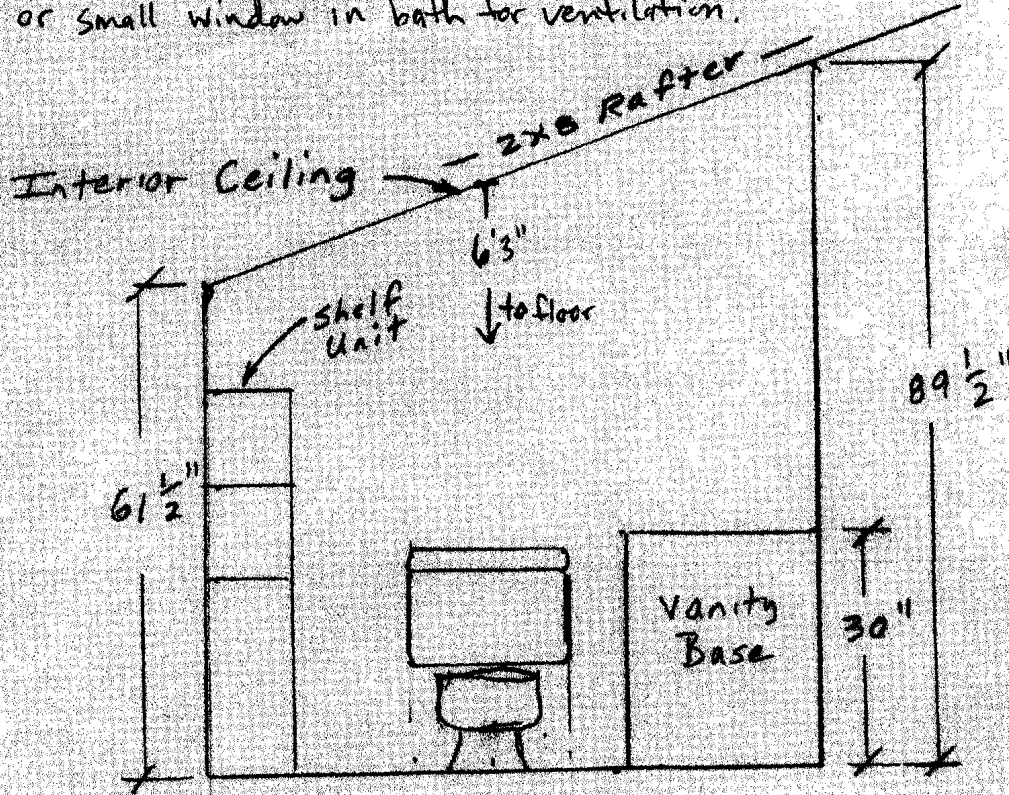 or small window in bath for ventilation.
2x8 Rafter
Interior Ceiling
6'3"
to floor
Shelf
Unit
89 1/2"
61 1/2"
Vanity
Base
30"